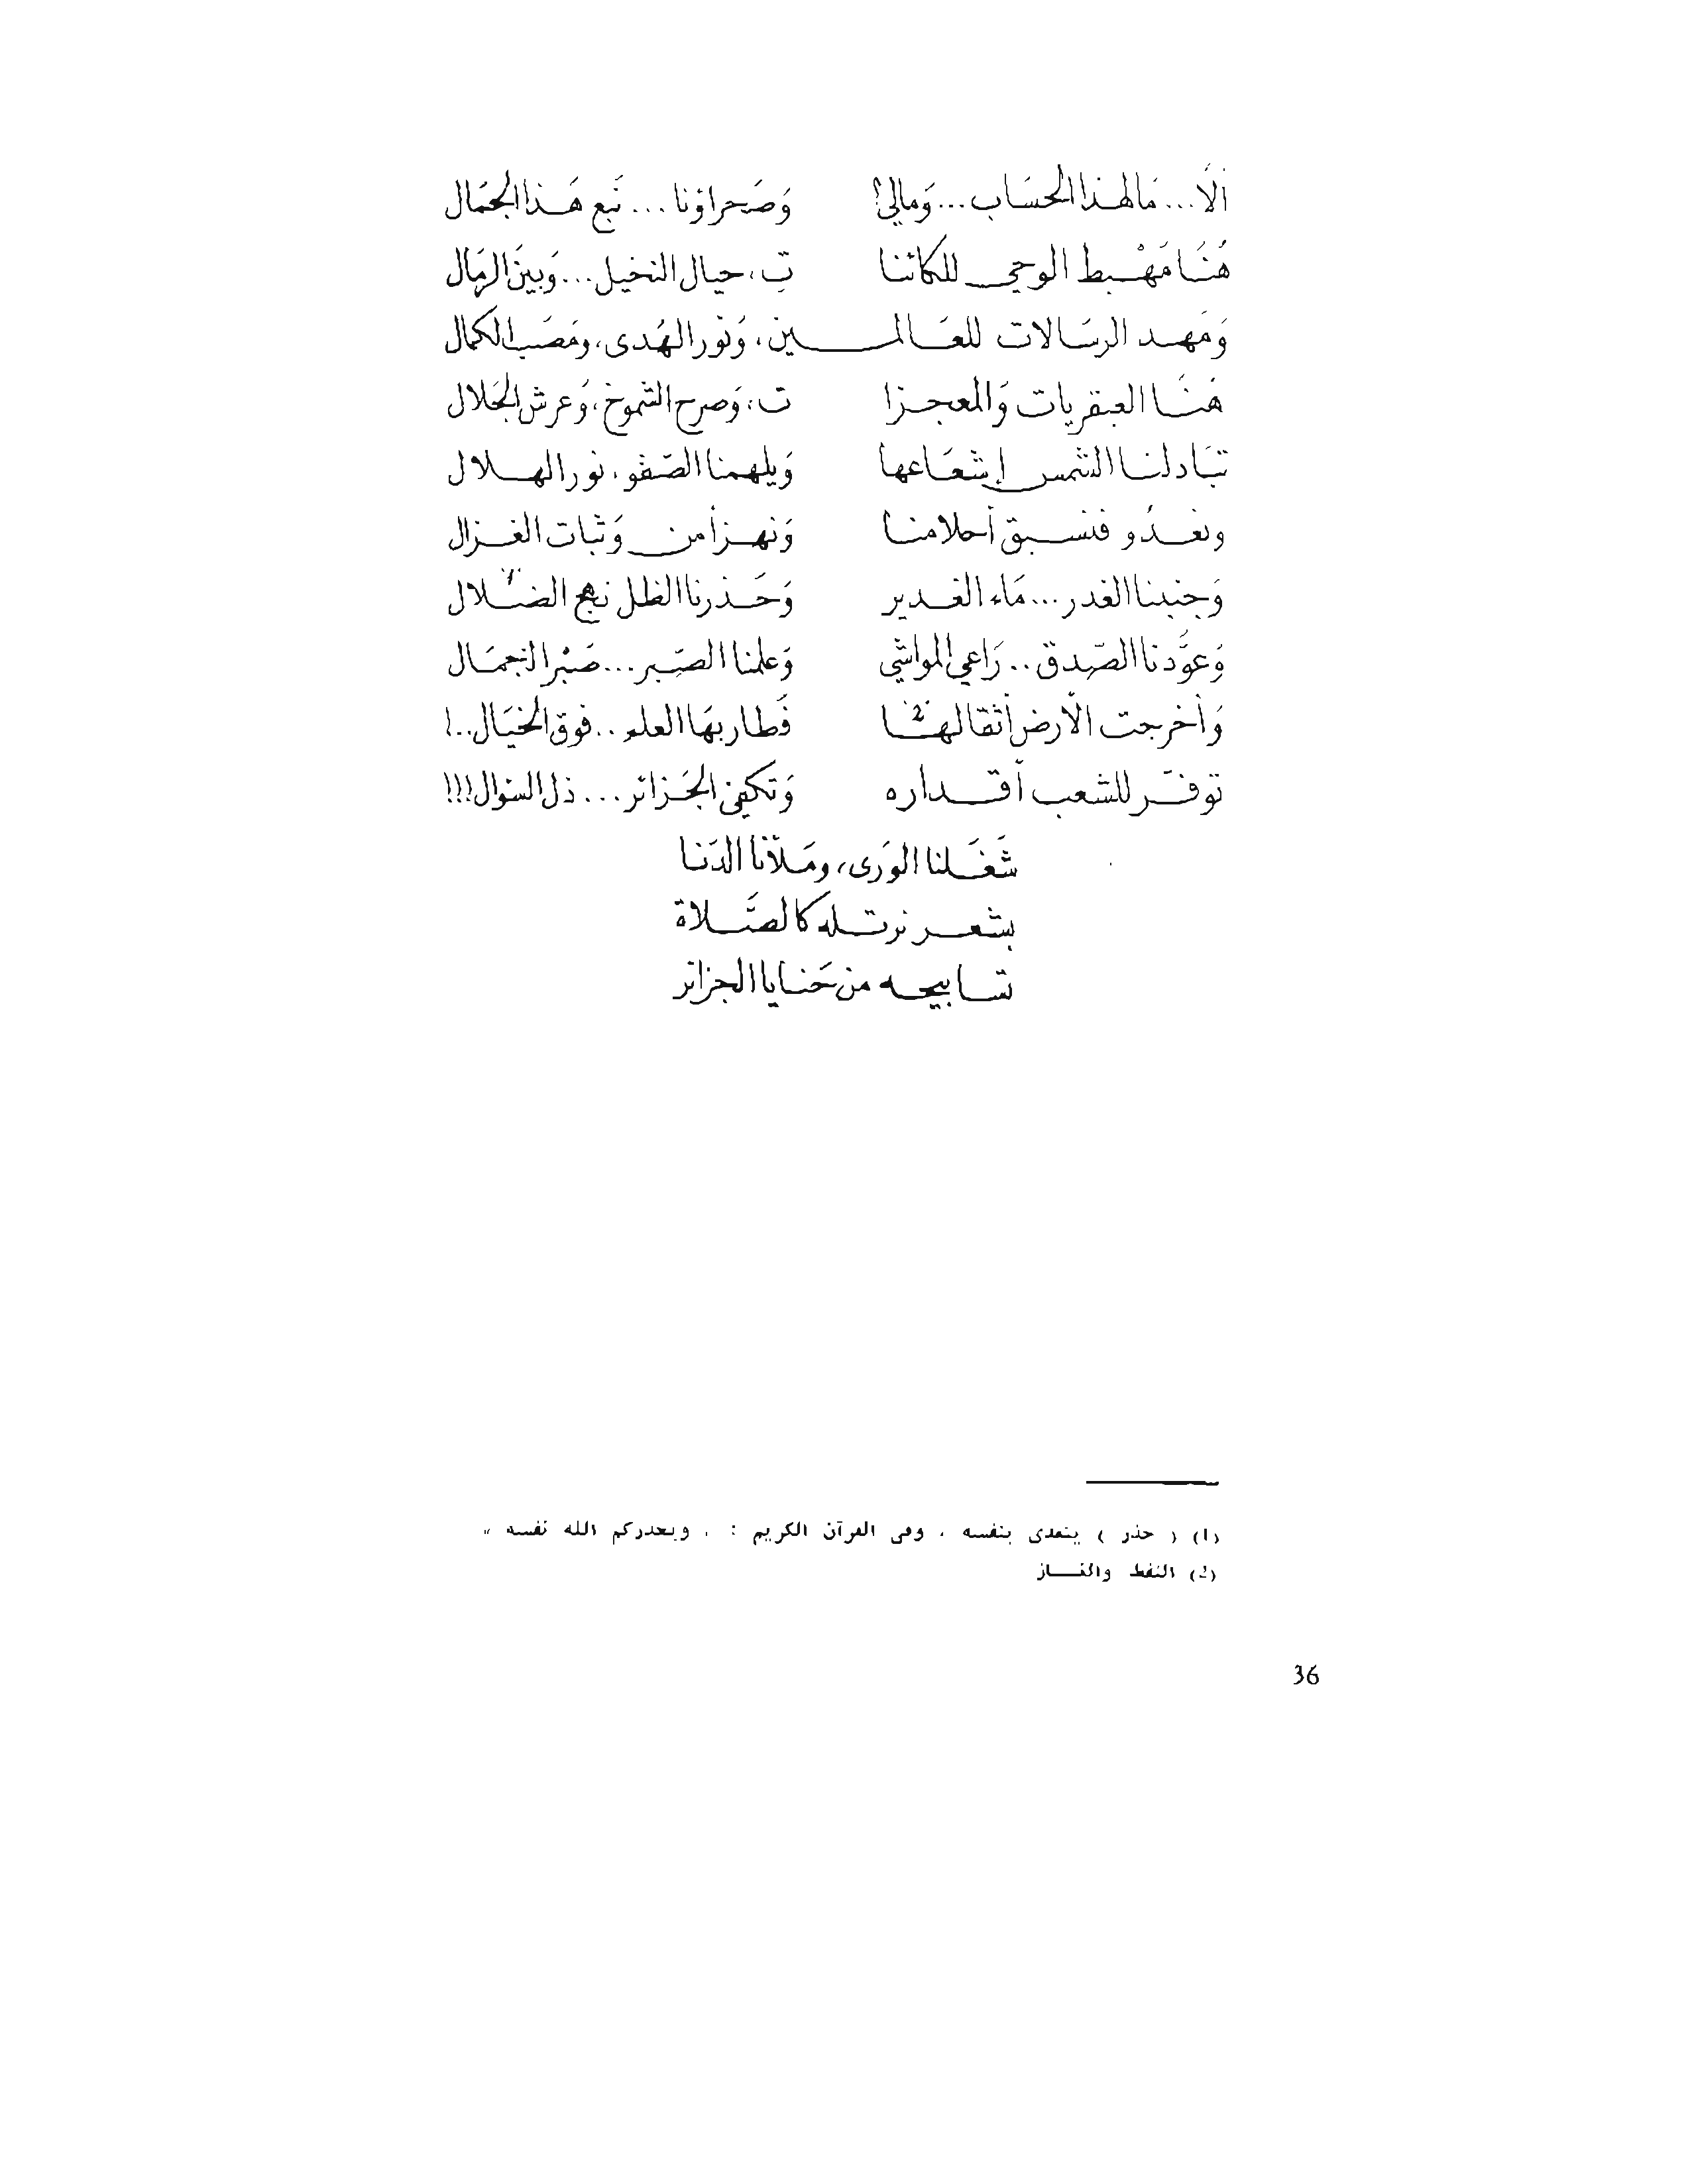 ألَا... مَا لهذا الحسَاب... وَمالي؟ وَصَحراؤنا... نَبع هَذا الجمَال
هُنَا مَهْبط الوحي للكائنا تِ، حيال النخيل... وَبينَ الرمَال
وَمَهد الرسَالات للعَالمين، وَنُور الهُدى، ومَصَب الكمال
هَنَا العبقريات وَالمعجزا ت، وَصرح الشموخ، وَعرش الجَلال
تبَادلنا الشمس إشعَاعها وَيلهمنا الصَفو، نور الهلال
ونغدُو فنسبق أحلامنا وَنهزأ من وَثبات الغزال
وَجنبنا الغدر... مَاء الغدير وَحَذرنا الظل نهج الضلال (1)
وَعوَّدنا الصّدق.. رَاعي المواشي وَعلمنا الصَبر... صَبْر الجمَال
وَأخرجت الأرض أثقالها (2) فَطار بهَا العلم.. فوق الخيَال..!
توفّر للشعب أقداره وَتكفي الجَزائر... ذل السؤال!!!
شَغَلنا الوَرى، ومَلأنا الدَنا
بشعر نرتله كالصَّلاة
تسابيحه من حَنايا الجزائر
(1) ( حذر ) يتعدى بنفسه ، وفى القرآن الكريم : « ويحذركم الله نفسه »
(2) النفط والغاز
36